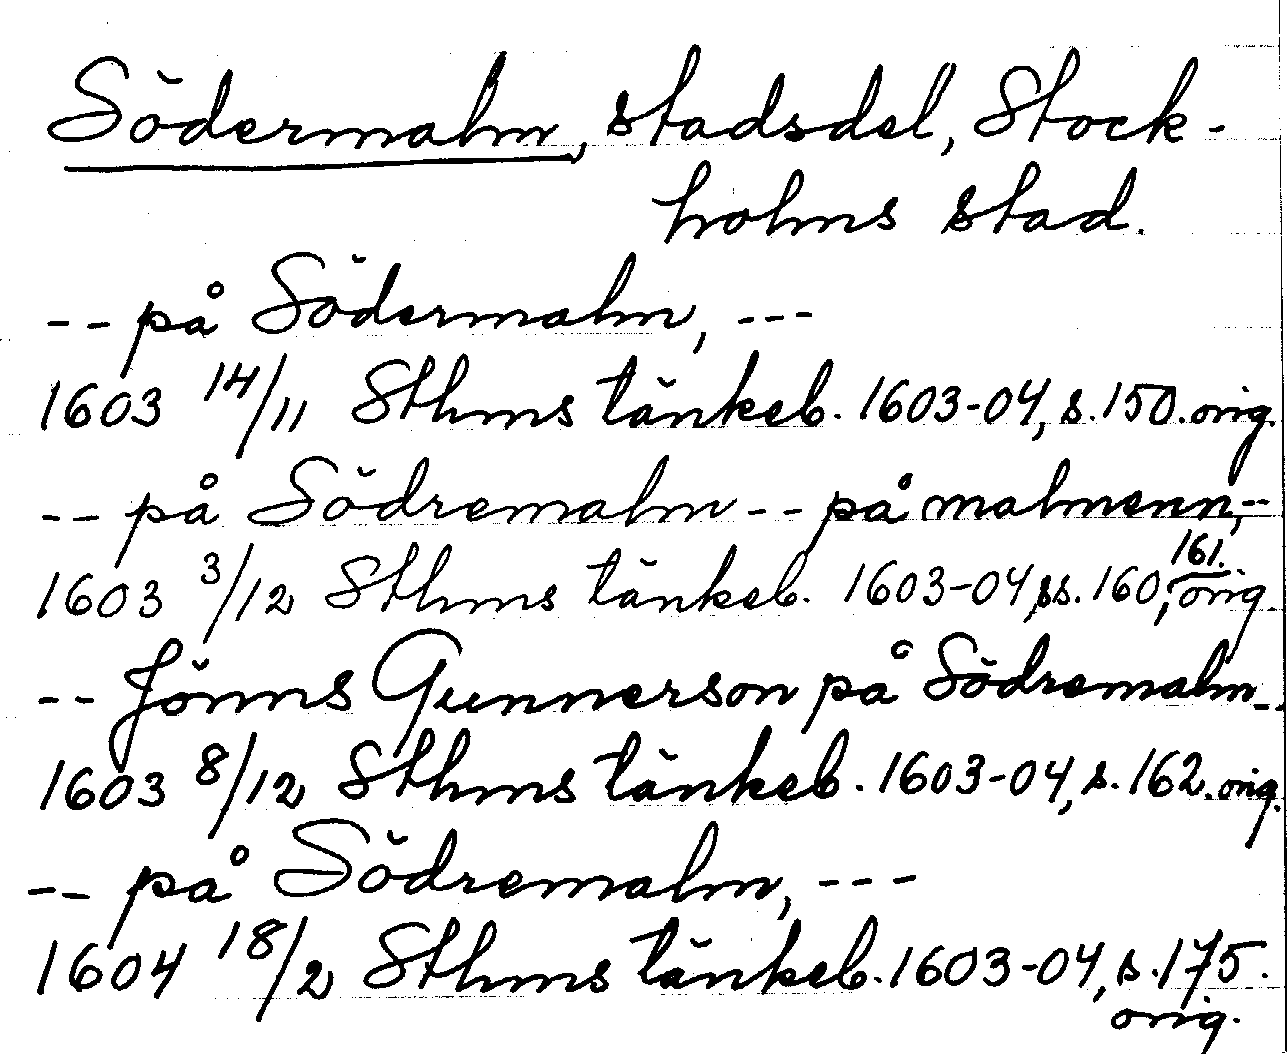 Södermalm, stadsdel, Stock-
holms stad.
-- på Södermalm, ---
1603 14/11 Sthms tänkeb. 1603-04, s. 150. orig.
-- på Södremalm -- på malmenn, --
1603 3/12 Sthms tänkeb. 1603-04, ss. 160, 161. orig.
-- Jönns Gunnerson på Södremalm --
1603 8/12 Sthms tänkeb. 1603-04, s. 162. orig.
-- på Södremalm, ---
1604 18/2 Sthms tänkeb. 1603-04, s. 175.
orig.